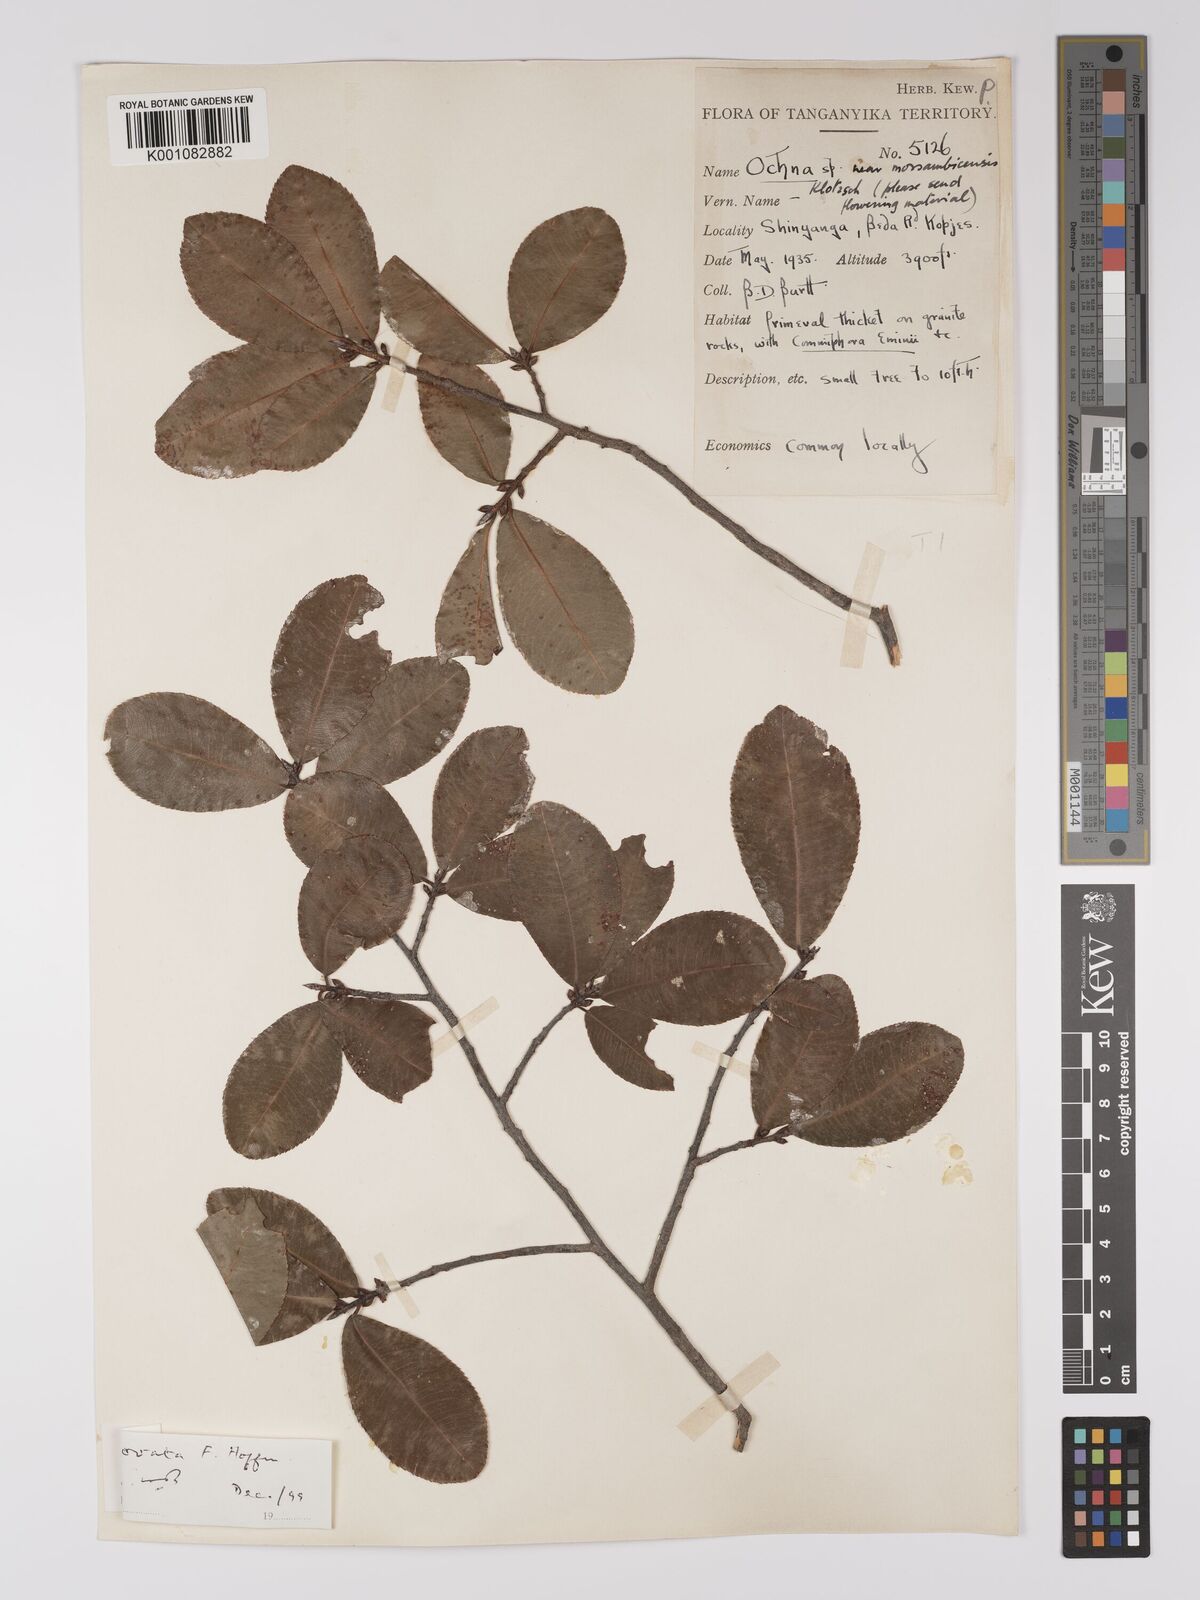 ROYAL BOTANIC GARDENS KEW
K001082882
HERB. KEW. P.
FLORA OF TANGANYIKA TERRITORY.
No. 5126
Name Ochna sp. near mossambicensis
Klotzsch (please send
Vern. Name – flowering material)
Locality Shinyanga, Beda Rd. Kopjes.
Date May. 1935. Altitude 3900ft.
Coll. B. D. Burtt
Habitat Primeval thicket on granite
rocks, with Commiphora Eminii &c.
Description, etc. Small tree to 10ft. h.
Economics Common locally
T1
ovata F. Hoffm
Dec. /99
19
inches
centimeters
Don Williams
M001144
Kew
Royal Botanic Gardens
copyright reserved
0 1 2 3 4 5 6 7 8 9 10
cm